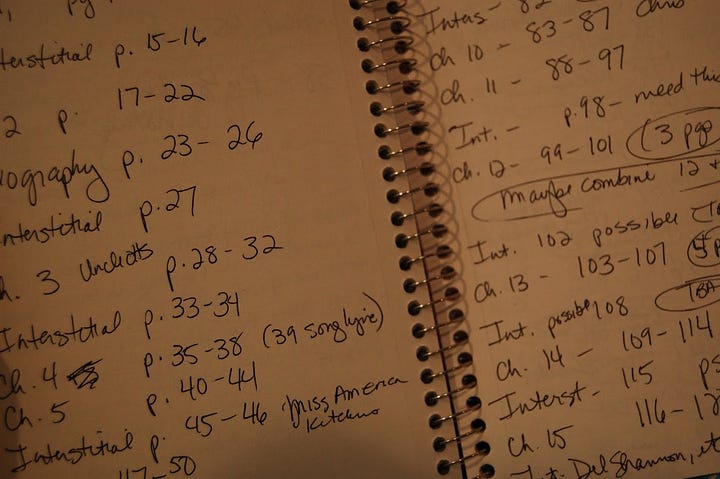 pg
terstitial p. 15-16
2 p. 17-22
ography p. 23-26
nterstitial p. 27
h. 3 p. 28-32
Interstitial p. 33-34
Ch. 4 p. 35-38 (39 song lyric)
Ch. 5 p. 40-44
Interstitial p. 45-46 Miss America
Kitchens
47-50
Inters - 82
ch 10 - 83-87 Chris
ch. 11 - 88-97
Int. - p. 98 - need this
ch. 12 - 99-101 (3 pgs
maybe combine 12 +
Int. 102 possible
ch. 13 - 103-107
Int. possible 108 TBA
ch. 14 - 109-114
Interst - 115 ps
ch. 15 116-12
Int. Del Shannon, et